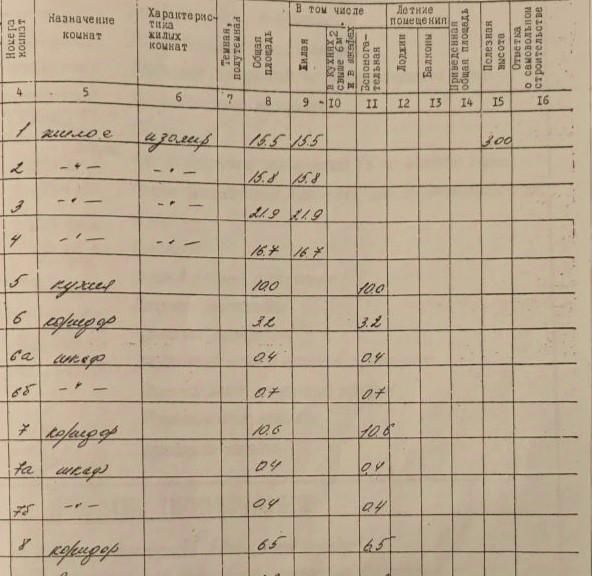 Номера комнат Назначение комнат Характеристика жилых комнат Темная, полутемная Общая площадь В том числе Летние помещения Приведенная общая площадь Полезная высота Отметка о самовольном строительстве
Жилая в кухнях свыше 6м2 и в шкафах Вспомогательная Лоджии Балконы
4 5 6 7 8 9 10 11 12 13 14 15 16
1 жилое изолир 15.5 15.5 300
2 -"- -"- 15.8 15.8
3 -"- -"- 21.9 21.9
4 -"- -"- 16.7 16.7
5 кухня 10.0 10.0
6 коридор 3.2 3.2
6а шкаф 0.4 0.4
6б -"- 0.7 0.7
7 коридор 10.6 10.6
7а шкаф 0.4 0.4
7б -"- 0.4 0.4
8 коридор 6.5 6.5